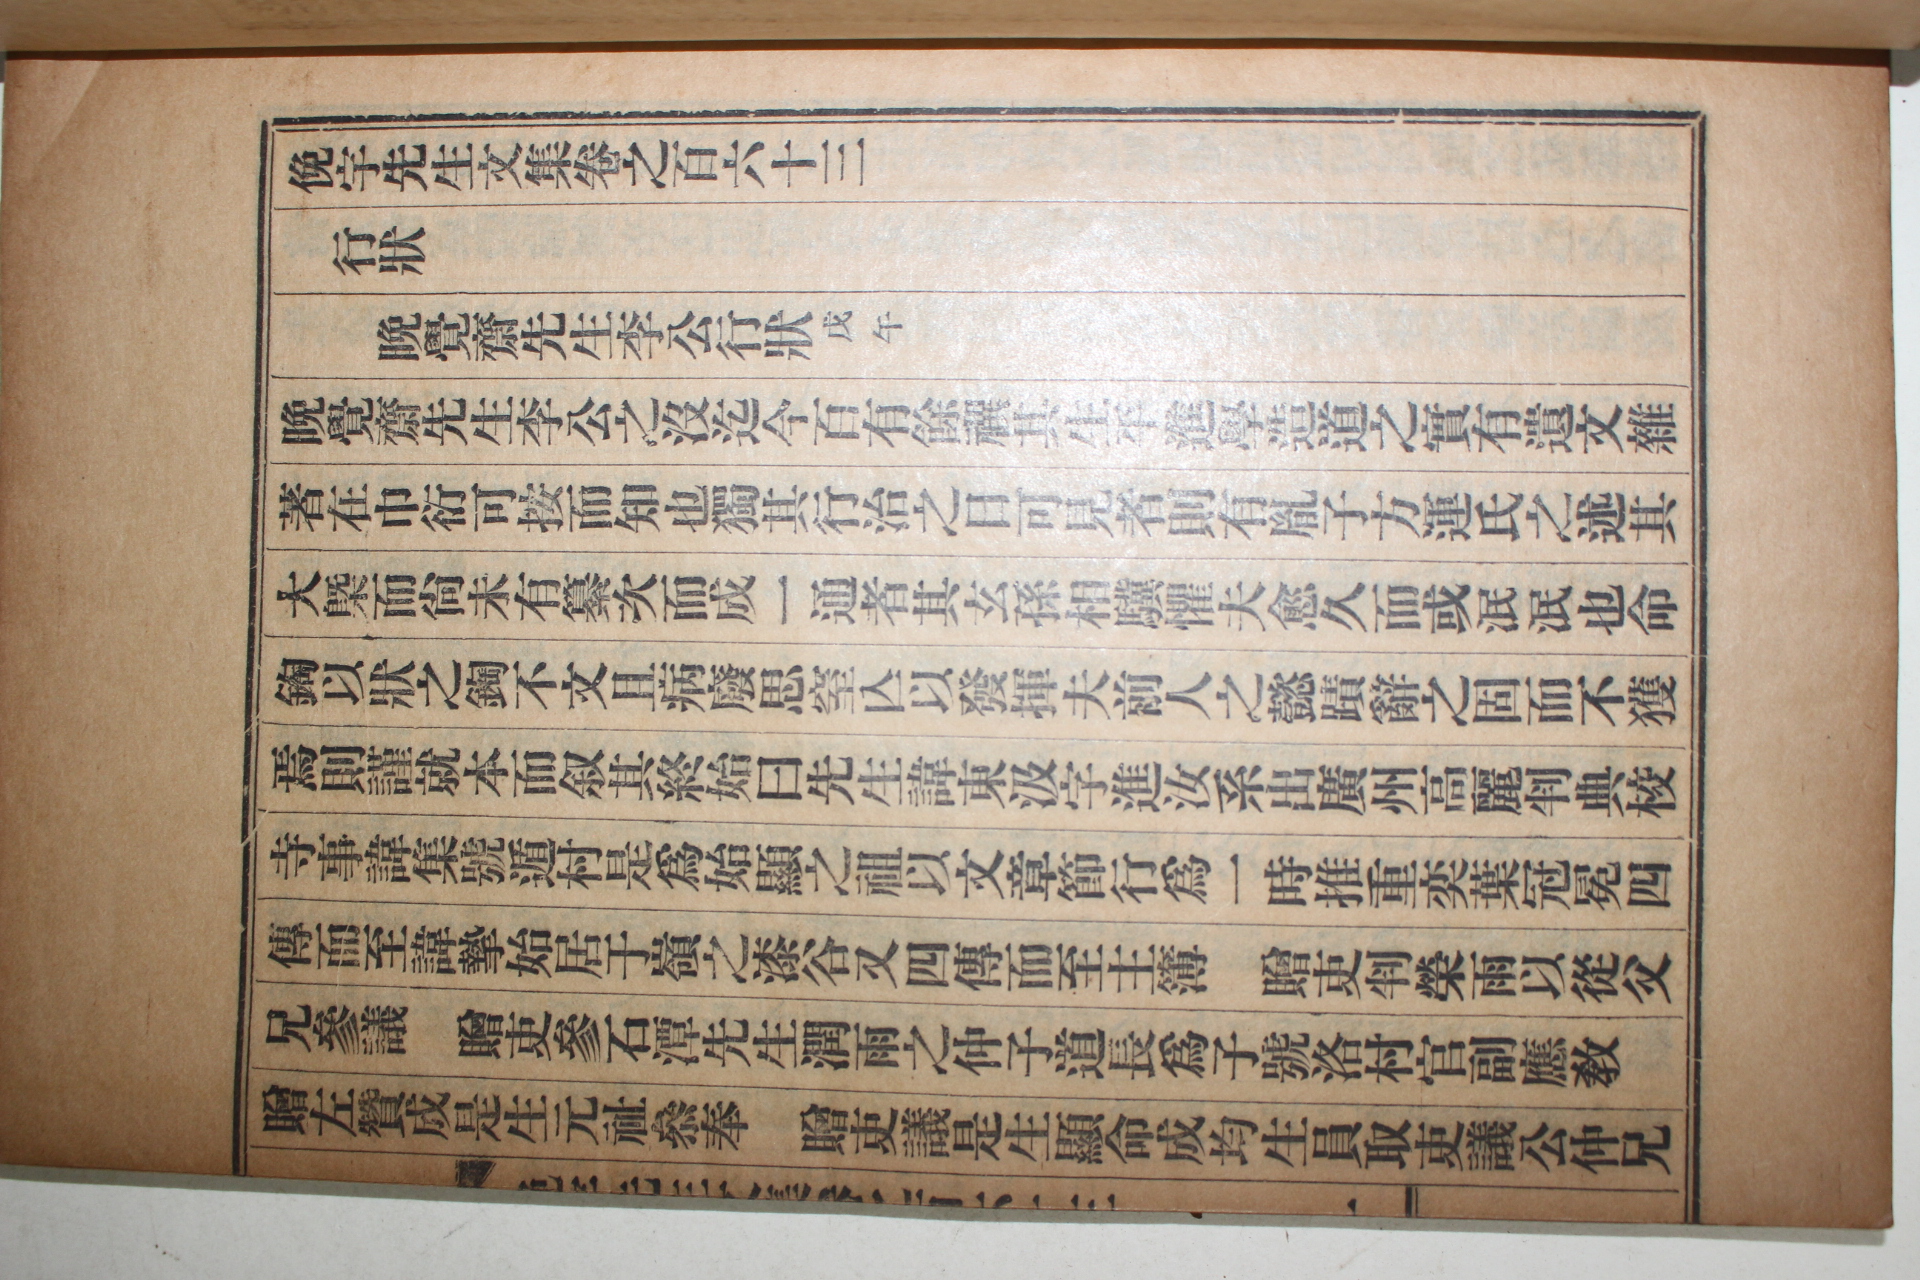 俛宇先生文集卷之百六十三
行狀
晩覺齋先生李公行狀 戊午
晩覺齋先生李公之沒迄今百有餘禩其生平進學造道之實有遺文雜
著在巾衍可按而知也獨其行治之日可見者則有胤子方運氏之述其
大槩而尙未有纂次而成一通者其玄孫相驥懼夫愈久而或泯泯也命
鋾以狀之鋾不文且病廢思窒亾以發揮夫前人之懿蹟辭之固而不獲
焉則謹就本而叙其終始曰先生諱東汲字進汝系出廣州高麗判典校
寺事諱集號遁村是爲始顯之祖以文章節行爲一時推重奕葉冠冕四
傳而至諱摯始居于嶺之漆谷又四傳而至主簿 贈吏判榮雨以從父
兄參議 贈吏參石潭先生潤雨之仲子道長爲子號洛村官副應敎
贈左贊成是生元祉叅奉 贈吏議是生顯命成均生員取吏議公仲兄